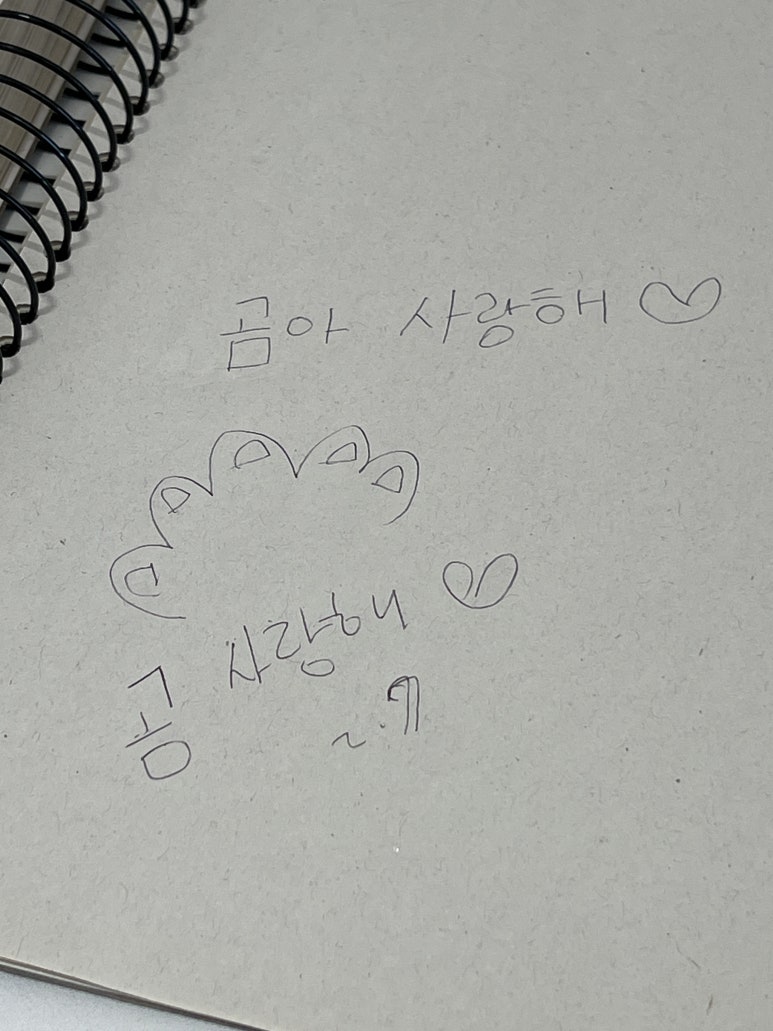 곰아 사랑해 ♡
곰 사랑해 ♡